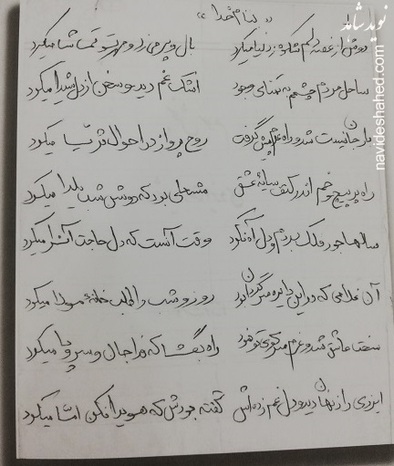 « بنام خدا »
دوش از غصه دلم شکوه ز دنیا میکرد بال و پر می زد و مهر تو تمنا میکرد
ساحل مردم چشمم به تمنای وجود اشک غم دید و سخن از دل شیدا میکرد
روح پرواز در احوال ثریا میکرد
راه پر پیچ و خم اندر کف سایه عشق مشعلی بود که دوش شب یلدا میکرد
سالها جور فلک بردم و دل آه نکرد وقت آنست که دل حاجت آنرا میکرد
آن غلامی که در این دایره سرگردان بود روز و شب را طلب خانه مولا میکرد
سخت عاشق شد و غم سر کوی تو نمود راه بگشا که فدا جان و سر و پا میکرد
ایزدی راز نهان دید و دل غم زده اش گفته بودش که هویدا مکن امشا میکرد
نوید شاهد
navideshahed.com